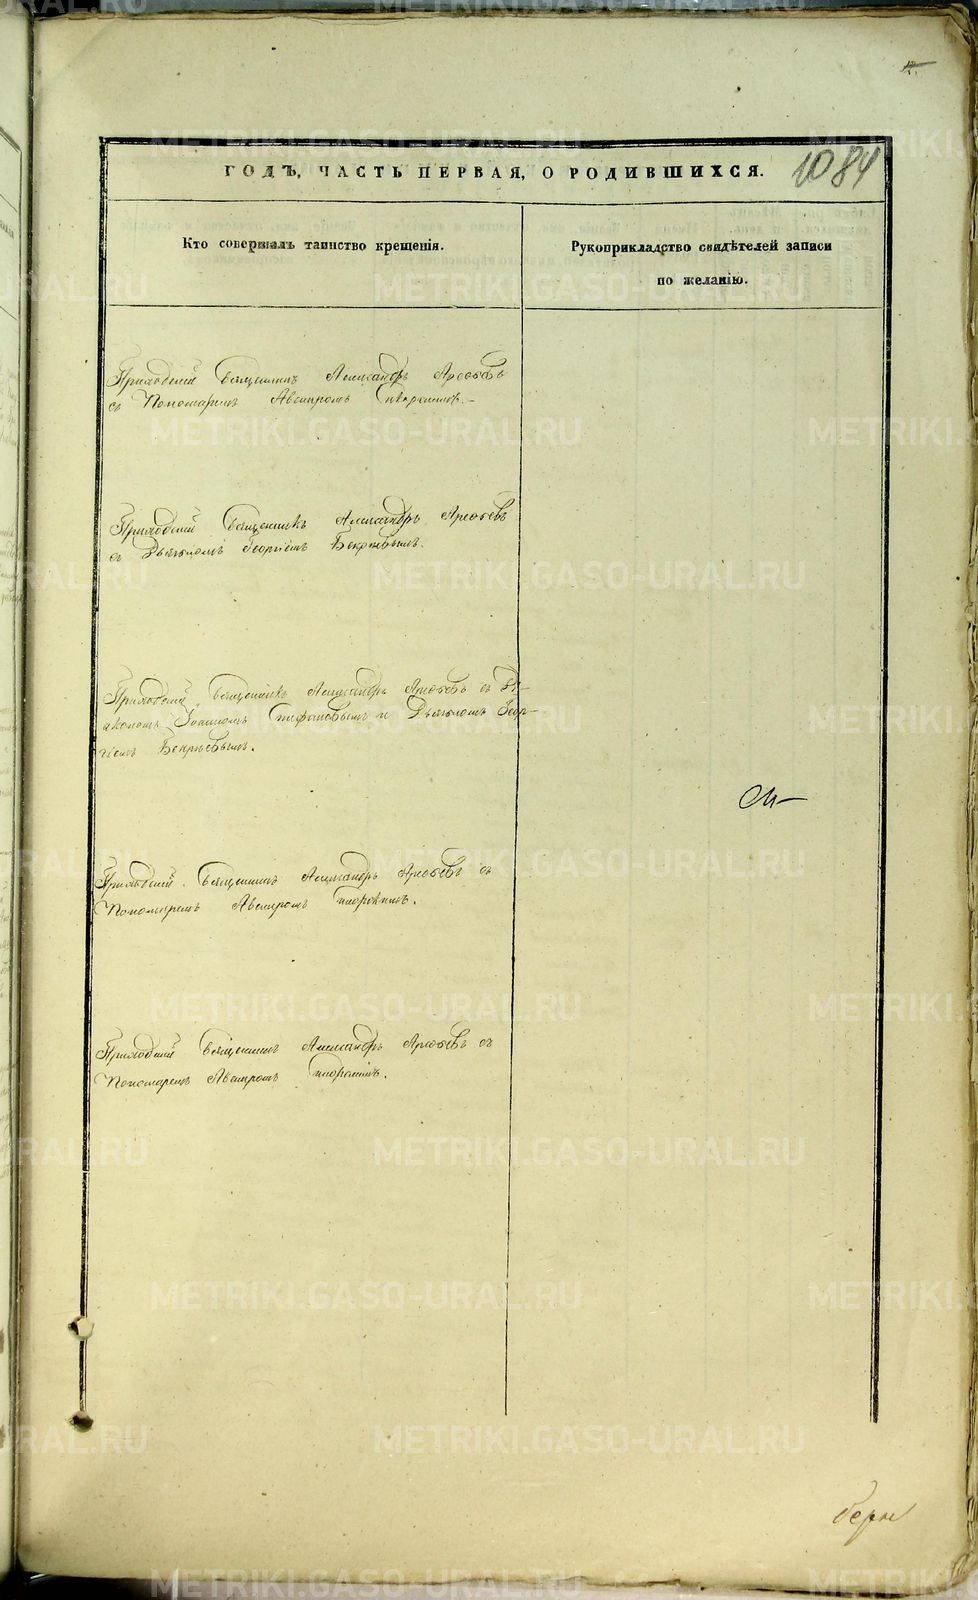 ГОДЪ, ЧАСТЬ ПЕРВАЯ, О РОДИВШИХСЯ.
1084
Кто совершалъ таинство крещенія.
Рукоприкладство свидѣтелей записи
по желанію.
Приходскій Священникъ Александръ Арефьевъ
съ Пономаремъ
Приходскій Священникъ Александръ Арефьевъ
съ Дьячкомъ Георгіемъ Бекряевымъ.
Приходскій Священникъ Александръ Арефьевъ съ Ді-
акономъ Іоанномъ Стефановымъ и Дьячкомъ Геор-
гіемъ Бекряевымъ.
Приходскій Священникъ Александръ Арефьевъ съ
Пономаремъ
Приходскій Священникъ Александръ Арефьевъ съ
Пономаремъ
METRIKI.GASO-URAL.RU